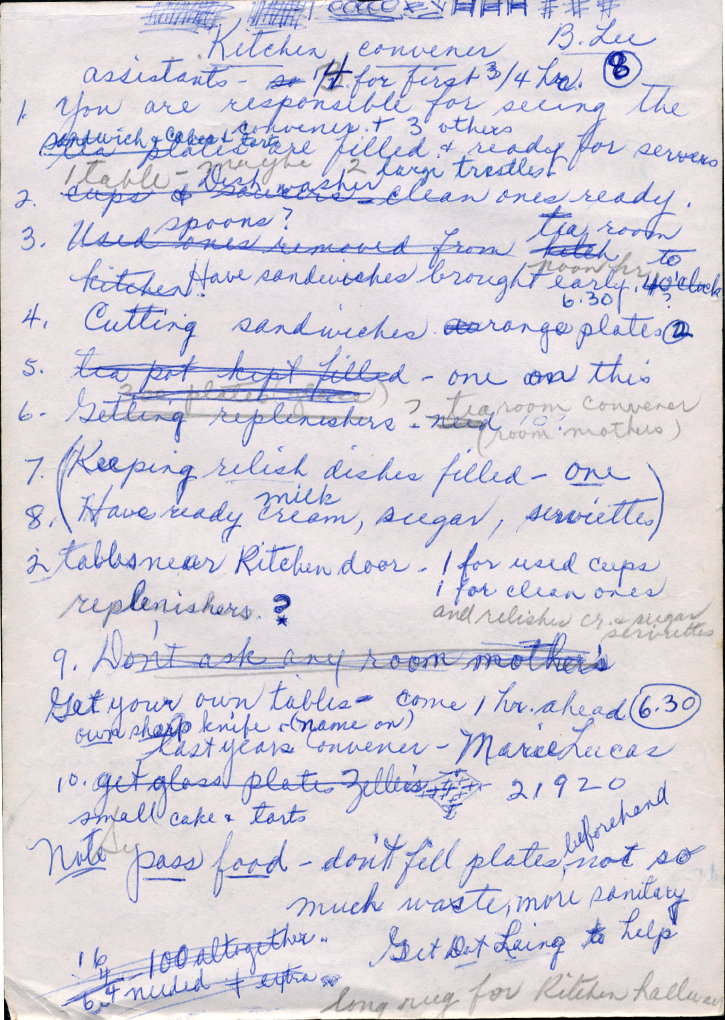 Kitchen convener B. Lee
assistants - 4 for first 3/4 hr. 8
1. You are responsible for seeing the
convener + 3 others
sandwich + cakes + tarts
tea plates are filled & ready for servers
1 table - maybe 2 large trestles
Dish washer
2. cups & saucers - clean ones ready.
spoons?
tea room
3. Used ones removed from kitch to
kitchen. Have sandwiches brought early. 4 o'clock
6.30 ?
4. Cutting sandwiches arrange plates 2
5. tea pot kept filled - one on this
6. Getting replenishers? need tea room convener
(room mothers)
7. (Keeping relish dishes filled - one
milk
8. Have ready cream, sugar, serviettes)
2 tables near Kitchen door - 1 for used cups
1 for clean ones
replenishers. ? and relishes cr. & sugar
serviettes
9. Don't ask any room mothers
Get your own tables - come 1 hr. ahead 6.30
own sharp knife - (name on)
last years convener - Marie Lucas
10. get glass plates Zellers 21920
small cake & tarts
beforehand
Note pass food - don't fill plates, not so
much waste, more sanitary
Get Dot Laing to help
16 - 100 altogether
64 needed + extra
long rug for Kitchen hallway